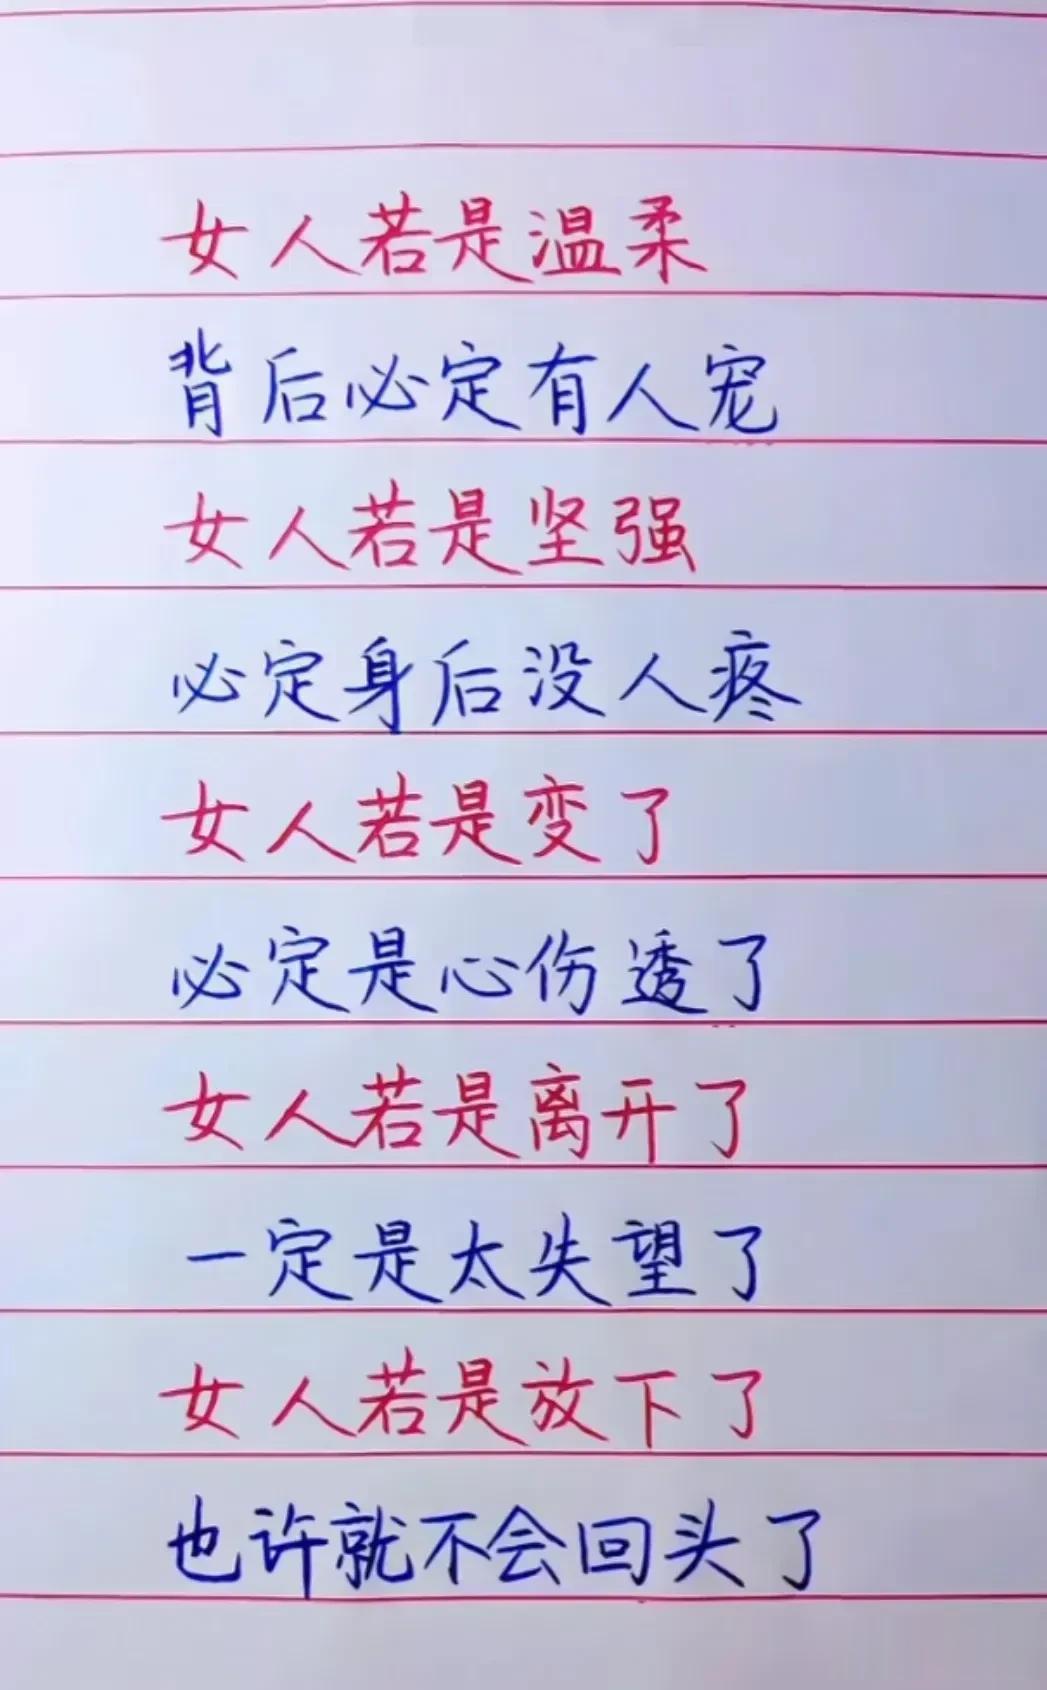 女人若是温柔
背后必定有人宠
女人若是坚强
必定身后没人疼
女人若是变了
必定是心伤透了
女人若是离开了
一定是太失望了
女人若是放下了
也许就不会回头了